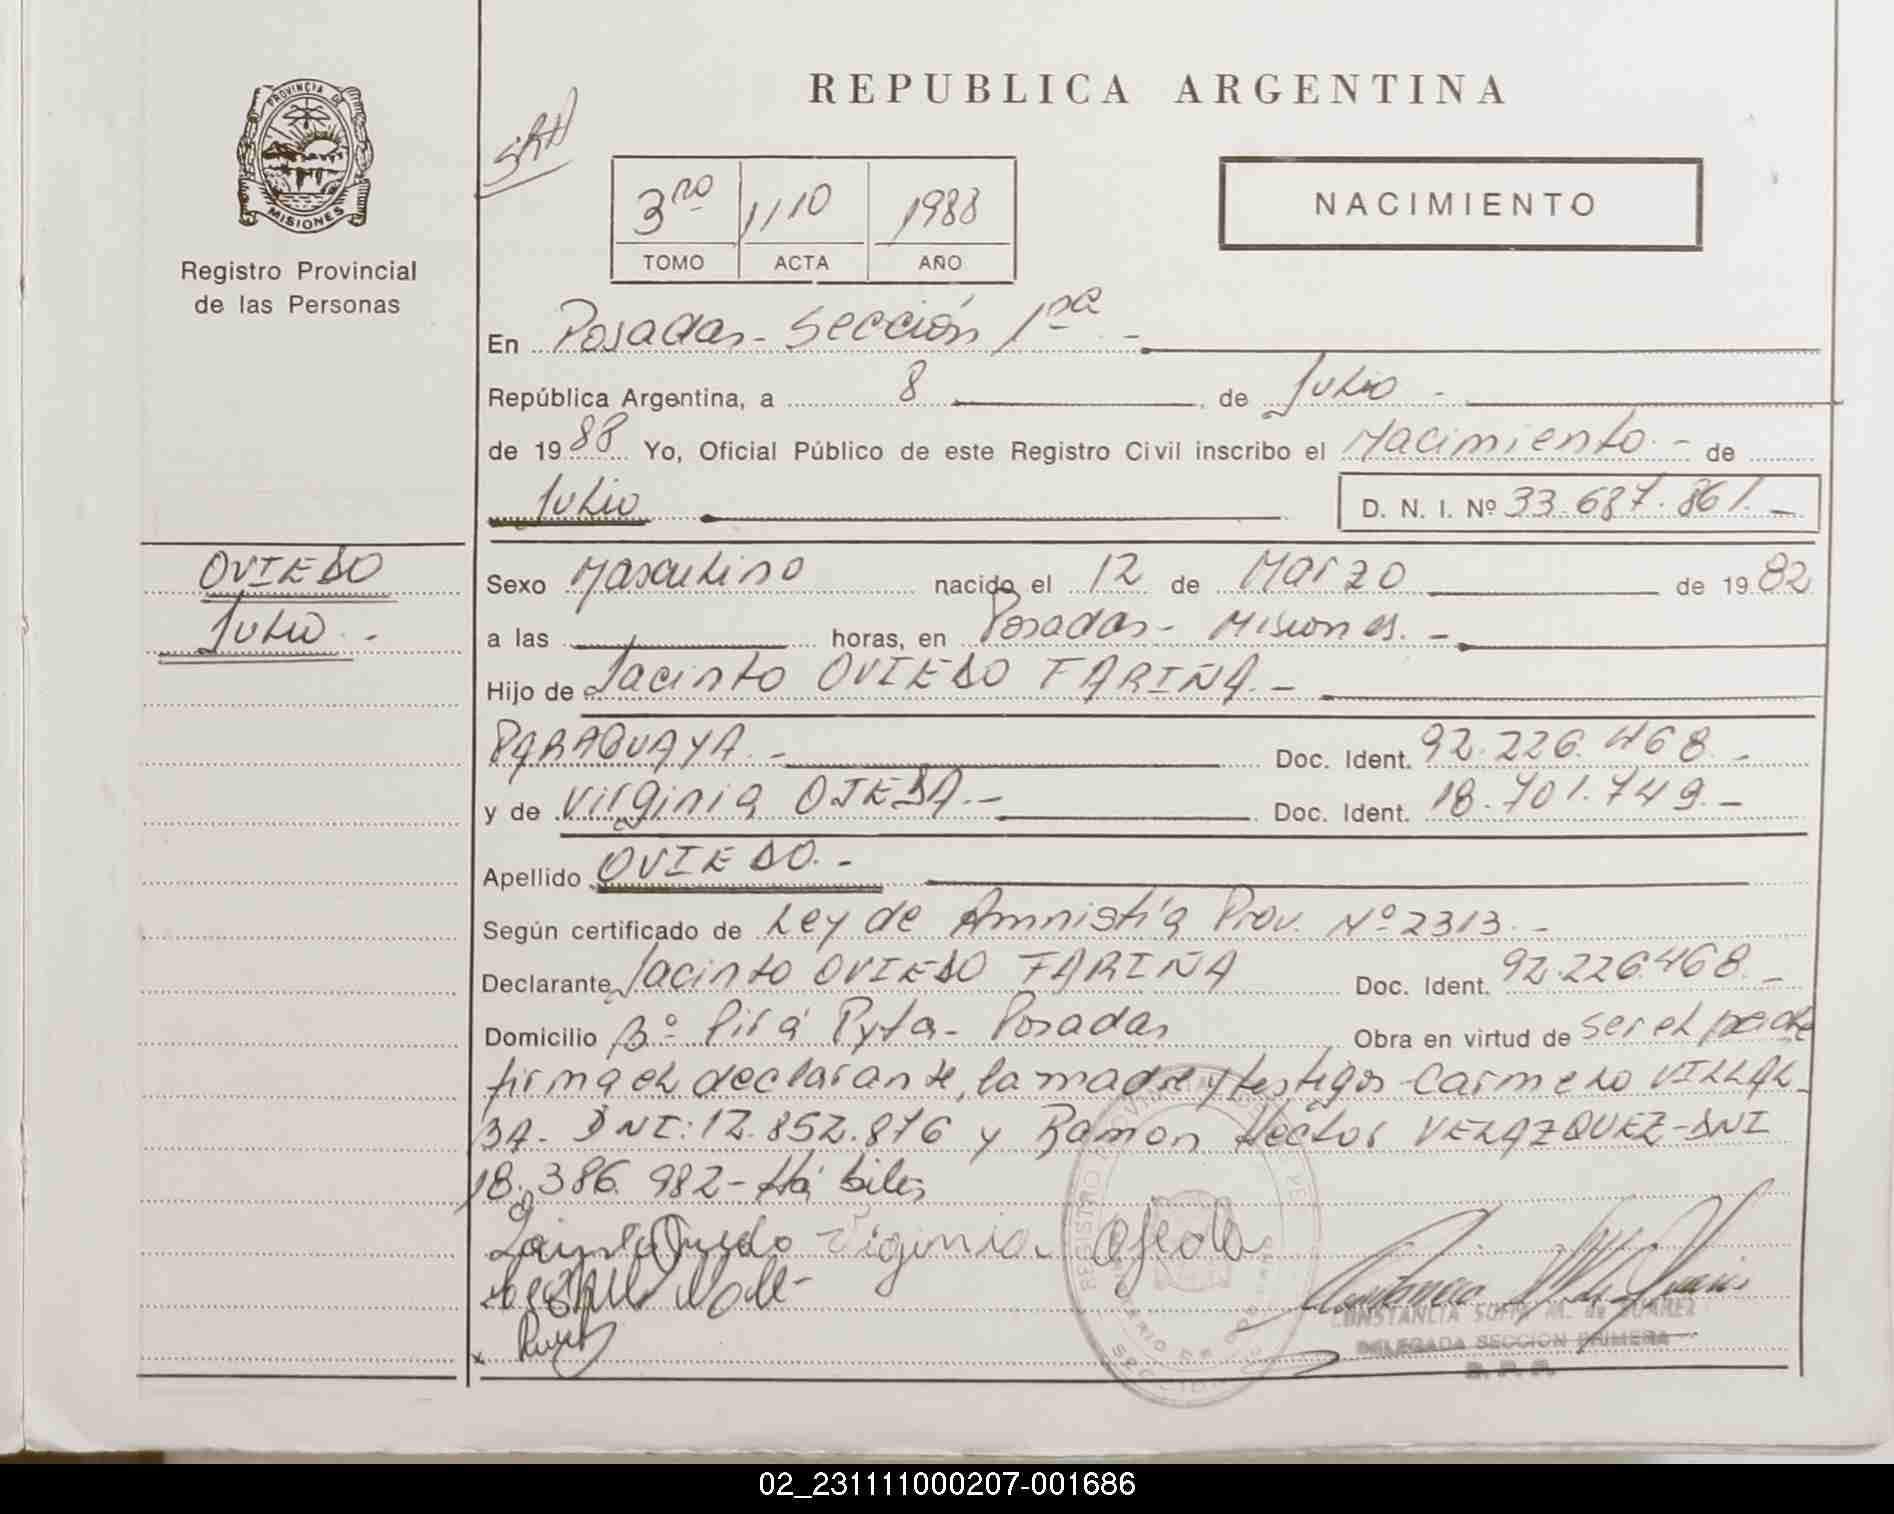 REPUBLICA ARGENTINA
PROVINCIA DE
MISIONES
Registro Provincial
de las Personas
3ro 1110 1988
TOMO ACTA AÑO
NACIMIENTO
En Posadas - Sección 1ra -
República Argentina, a 8 de Julio -
de 1988 Yo, Oficial Público de este Registro Civil inscribo el Nacimiento - de
Julio D. N. I. Nº 33.687.861. -
OVIEDO
Julio. -
Sexo Masculino nacido el 12 de Marzo de 1982
a las horas, en Posadas - Misiones. -
Hijo de Jacinto OVIEDO FARIÑA. -
PARAGUAYA. - Doc. Ident. 92.226.468. -
y de Virginia OJEDA. - Doc. Ident. 18.701.749. -
Apellido OVIEDO. -
Según certificado de Ley de Amnistía Prov. Nº 2313. -
Declarante Jacinto OVIEDO FARIÑA Doc. Ident. 92.226.468. -
Domicilio Bº Pirá Pyta - Posadas Obra en virtud de ser el padre
firma el declarante, la madre y testigos Carmelo VILLAL-
BA - DNI: 12.852.876 y Ramon Hector VELAZQUEZ - DNI
18.386.982 - Hábiles
Viginia Ojeda
CONSTANCIA SOFIA M. de SUAREZ
DELEGADA SECCION PRIMERA
R. P. P.
02_231111000207-001686